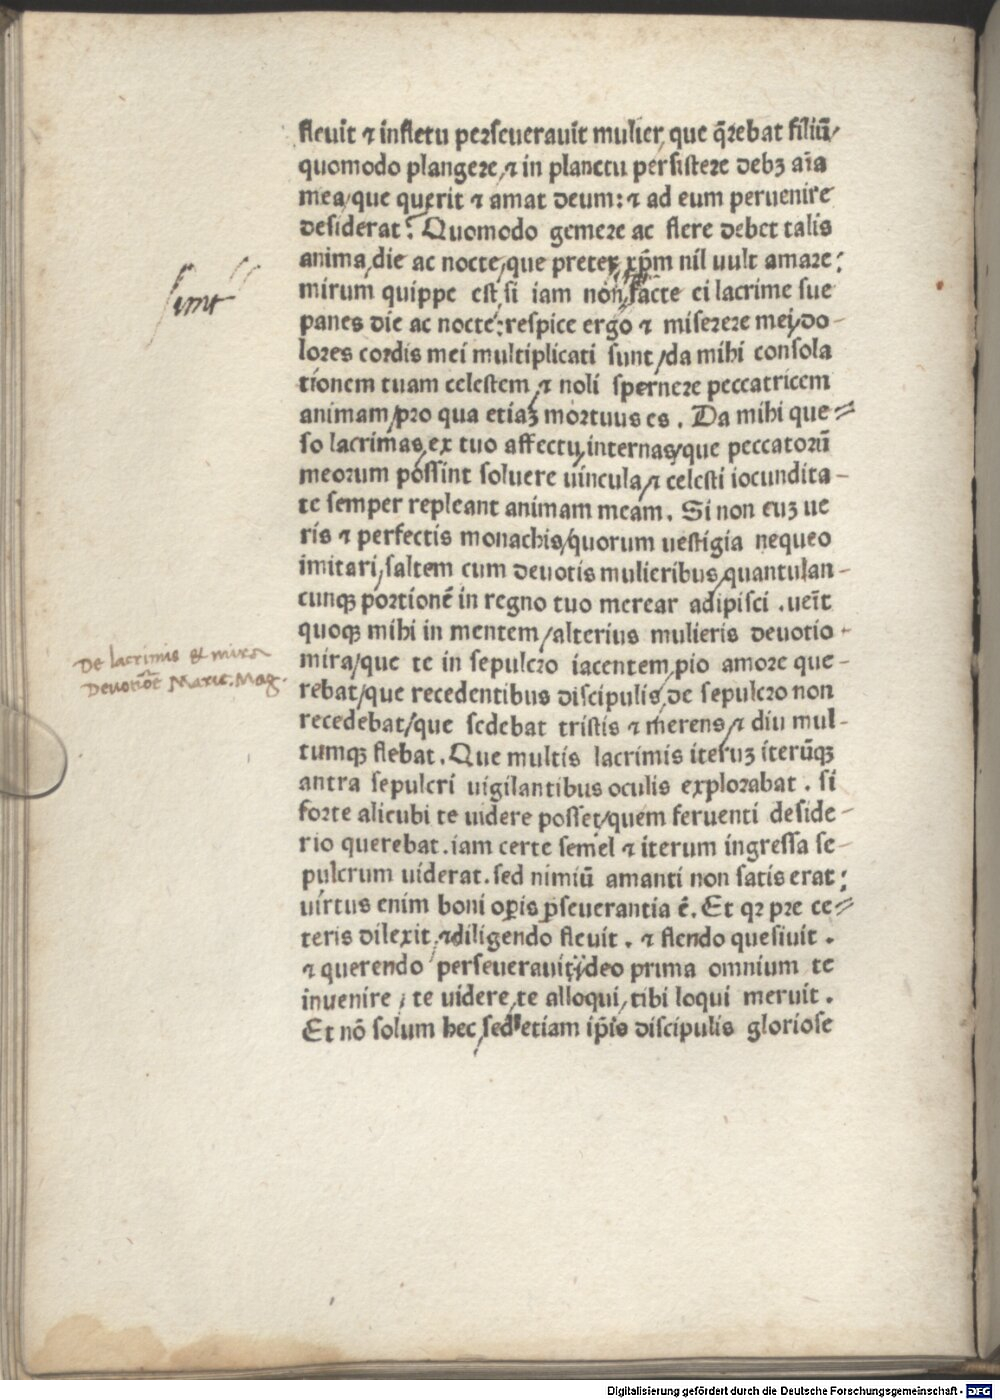 fleuit ⁊ infletu perseuerauit mulier, que q̄rebat filiū/
quomodo plangere,/⁊ in planctu persistere debꝫ aīa
mea/que querit ⁊ amat deum: ⁊ ad eum peruenire
desiderat? Quomodo gemere ac flere debet talis
anima,die ac nocte/que preter xp̄m nil uult amare:
mirum quippe est,si iam non facte ei lacrime sue
panes die ac nocte:respice ergo ⁊ miserere mei/do-
lores cordis mei multiplicati sunt/da mihi consola
tionem tuam celestem,⁊ noli spernere peccatricem
animam/pro qua etiaꝫ mortuus es. Da mihi que=
so lacrimas,ex tuo affectu,internas/que peccatorū
meorum possint soluere uincula,⁊ celesti iocundita-
te semper repleant animam meam. Si non cuꝫ ue
ris ⁊ perfectis monachis/quorum uestigia nequeo
imitari,saltem cum deuotis mulieribus,quantulan-
cunqꝫ portionē in regno tuo merear adipisci .uenīt
quoqꝫ mihi in mentem/alterius mulieris deuotio-
mira/que te in sepulcro iacentem,pio amore que-
rebat/que recedentibus discipulis,de sepulcro non
recedebat/que sedebat tristis ⁊ merens,⁊ diu mul-
tumqꝫ flebat. Que multis lacrimis iteruꝫ iterūqꝫ
antra sepulcri uigilantibus oculis explorabat. si
forte alicubi te uidere posset/quem feruenti deside-
rio querebat.iam certe semel ⁊ iterum ingressa se-
pulcrum uiderat.sed nimiū amanti non satis erat:
uirtus enim boni oꝑis ꝑseuerantia ē. Et qꝛ pre ce=
teris dilexit,⁊diligendo fleuit. ⁊ flendo quesiuit.
⁊ querendo perseuerauit;ideo prima omnium te
inuenire, te uidere,te alloqui,tibi loqui meruit.
Et nō solum hec,sed etiam ip̄is discipulis gloriose
De lacrimis & mira
Deuotiōe Marie. Mag.
Digitalisierung gefördert durch die Deutsche Forschungsgemeinschaft - DFG